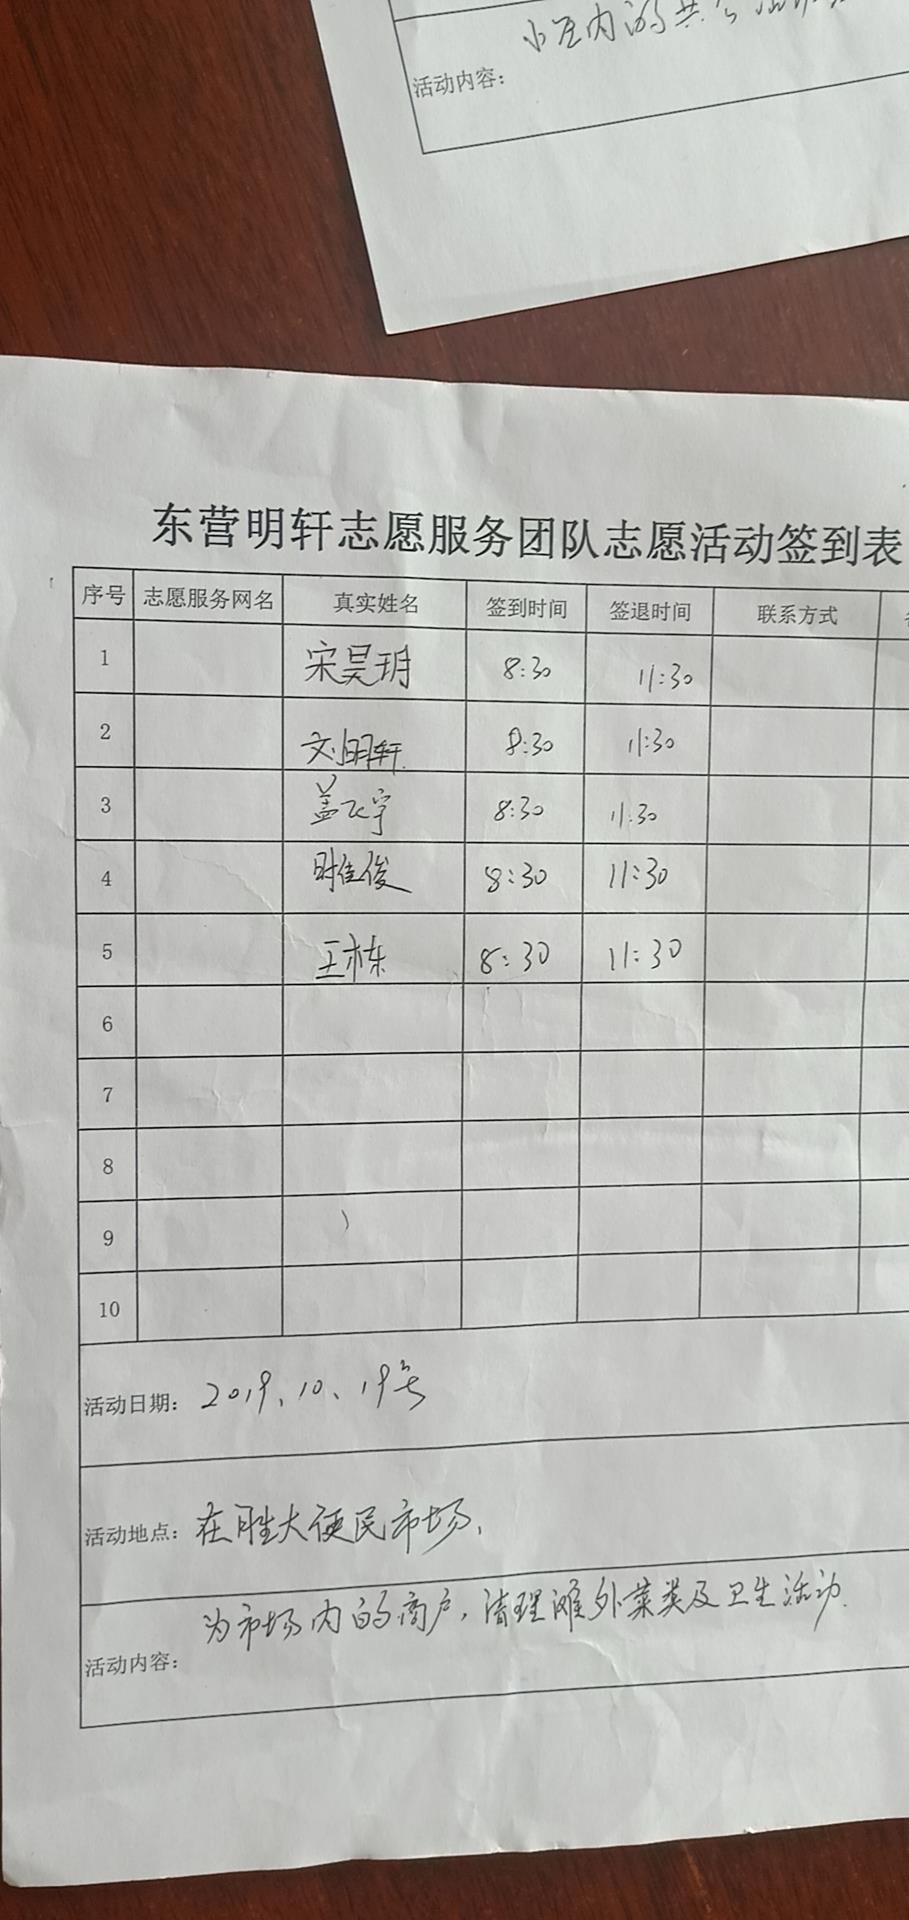 小区内的共
活动内容：
东营明轩志愿服务团队志愿活动签到表
序号 志愿服务网名 真实姓名 签到时间 签退时间 联系方式
1 宋昊玥 8:30 11:30
2 刘明轩 8:30 11:30
3 盖飞宇 8:30 11:30
4 时佳俊 8:30 11:30
5 王栋 8:30 11:30
6
7
8
9
10
活动日期： 2019、10、19号
活动地点： 在胜大便民市场、
为市场内的商户，清理滩外菜类及卫生活动.
活动内容：